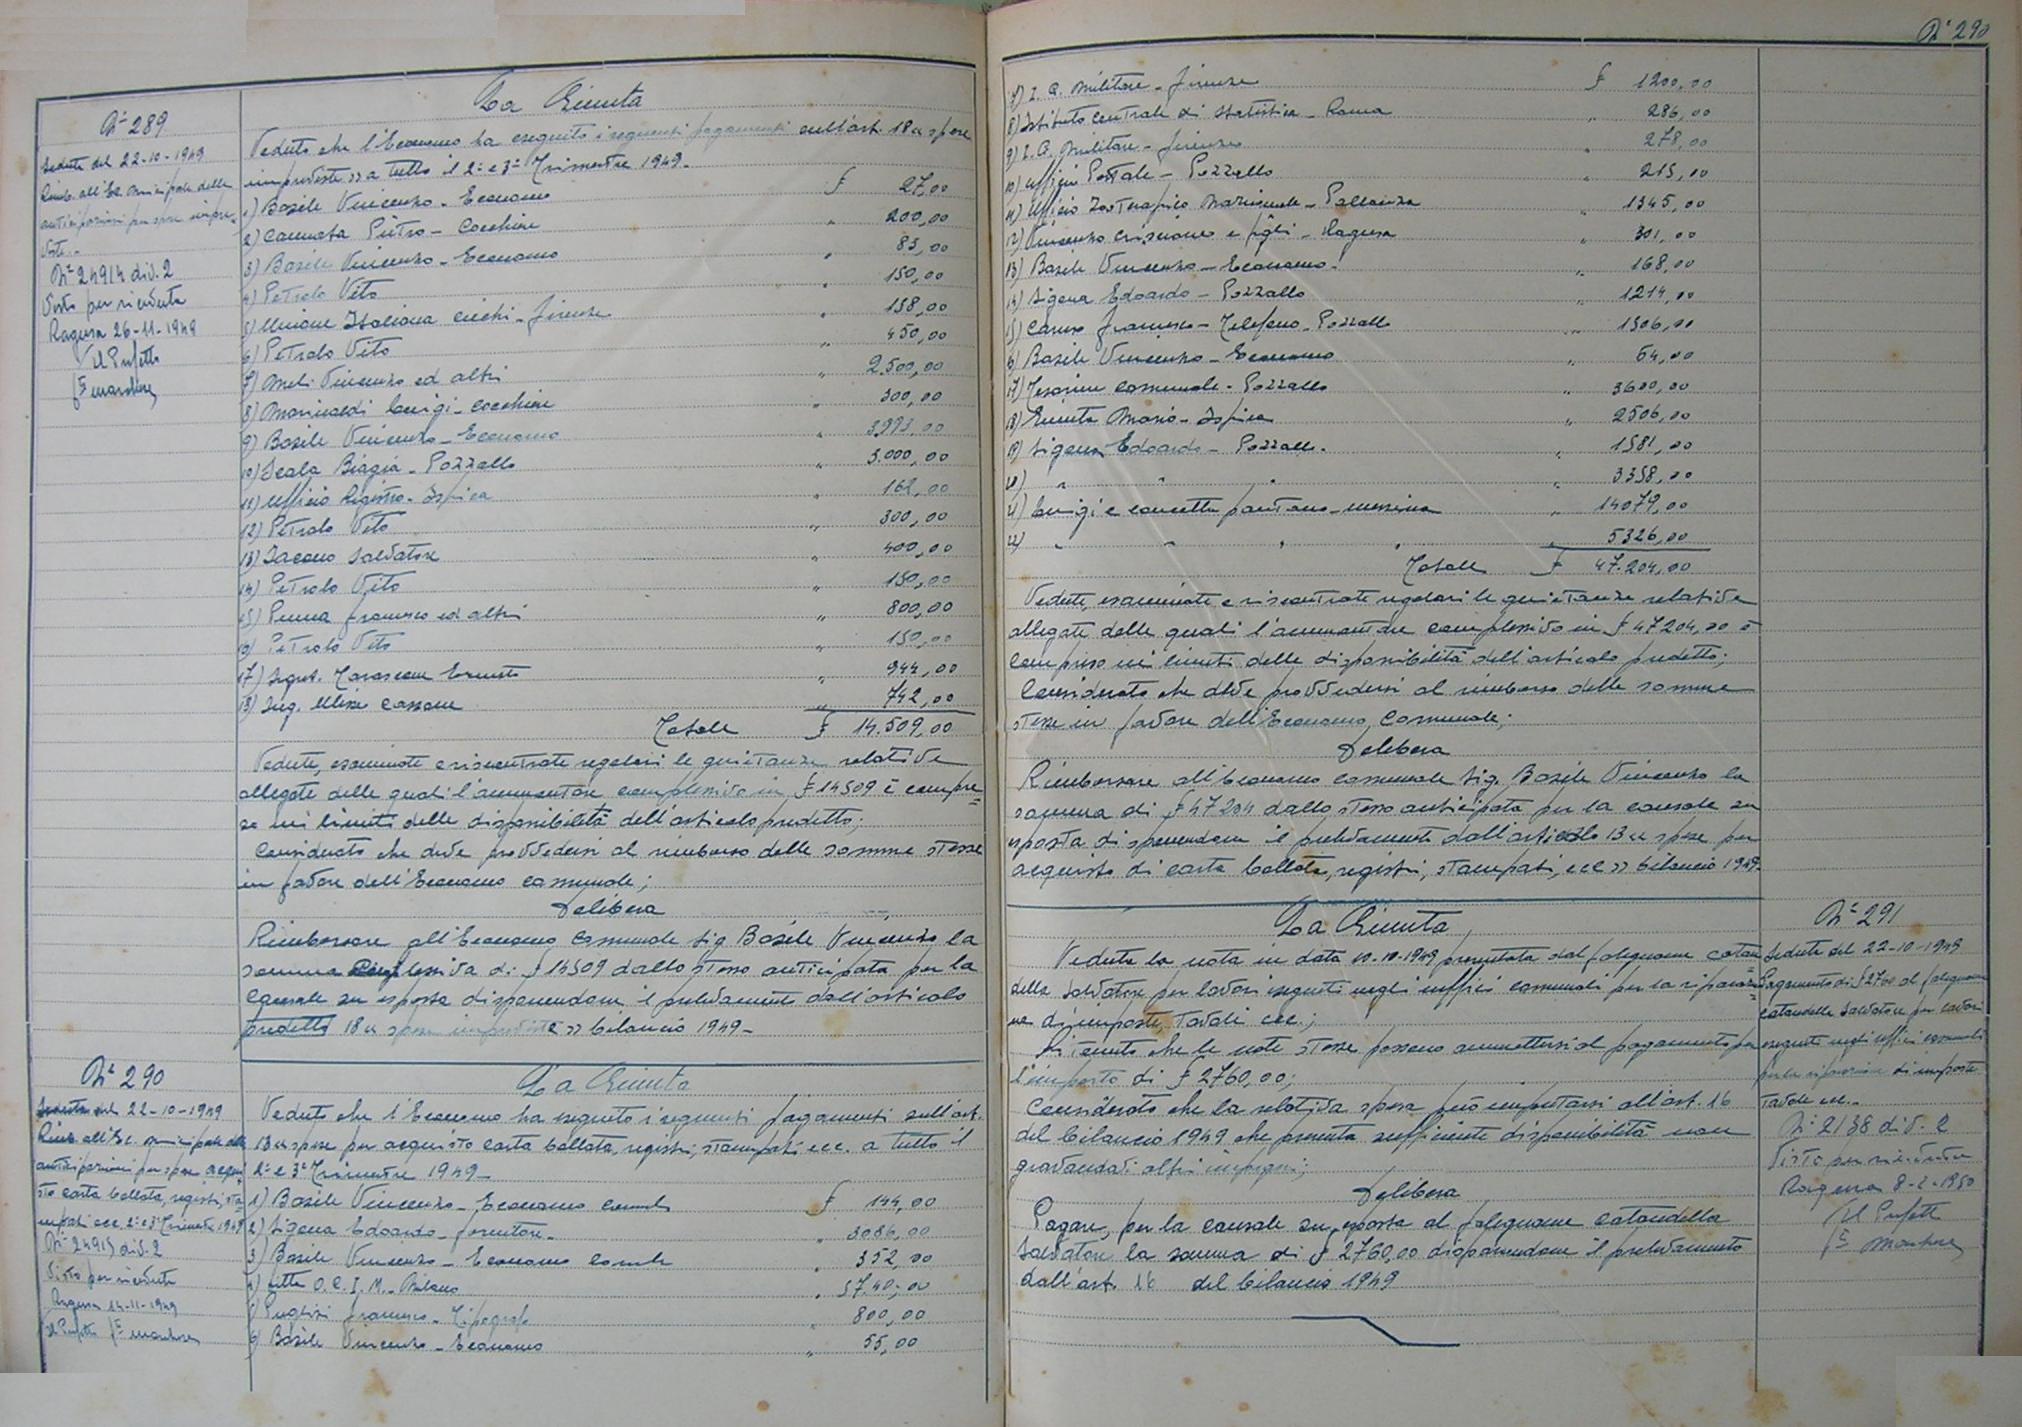 N° 289
Seduta del 22-10-1949
Rimb. all'Ec. Municipale delle
anticipazioni per spese impre=
viste.-
N° 24914 div. 2
Visto per ricevuta
Ragusa 26-11-1949
Il Prefetto
La Giunta
Veduto che l'Economo ha eseguito i seguenti pagamenti sull'art. 18 "spese
impreviste" a tutto il 2° e 3° Trimestre 1949.
1) Basile Vincenzo - Economo £ 27,00
2) Cannata Pietro - Cocchiere " 200,00
3) Basile Vincenzo - Economo " 83,00
4) Petralo Vito " 150,00
5) Unione Italiana Ciechi - Firenze " 158,00
6) Petralo Vito " 450,00
7) Meli Vincenzo ed altri " 2.500,00
8) Marinaldi Luigi - Cocchiere " 300,00
9) Basile Vincenzo - Economo " 3993,00
10) Scala Biagia - Pozzallo " 3.000,00
11) Ufficio Registro - Ispica " 162,00
12) Petralo Vito " 300,00
13) Iacono Salvatore " 400,00
14) Petralo Vito " 150,00
15) Penna Francesco ed altri " 800,00
16) Petralo Vito " 150,00
17) Segret. Tarascone Ernesto " 944,00
18) Ing. Ulisse Cassone " 742,00
Totale £ 14.509,00
Vedute, esaminate e riscontrate regolari le quietanze relative
allegate delle quali l'ammontare complessivo in £ 14509 è compre=
so nei limiti delle disponibilità dell'articolo predetto;
Considerato che deve provvedersi al rimborso delle somme stesse
in favore dell'Economo comunale;
Delibera
Rimborsare all'Economo Comunale Sig. Basile Vincenzo la
somma complessiva di £ 14509 dallo stesso anticipata per la
causale su esposta disponendone il prelevamento dall'articolo
predetto 18 "spese impreviste" bilancio 1949-
N° 290
Seduta del 22-10-1949
Rimb. all'Ec. municipale delle
anticipazioni per spese acqui
sto carta bollata, registri, sta
mpati ecc. 2° e 3° Trimestre 1949
N° 24915 div. 2
Visto per ricevuta
Ragusa 14-11-1949
Il Prefetto
La Giunta
Veduto che l'Economo ha eseguito i seguenti pagamenti sull'art.
13 "spese per acquisto carta bollata, registri, stampati ecc. a tutto il
2° e 3° Trimestre 1949-
1) Basile Vincenzo - Economo comunale £ 144,00
2) Sigona Edoardo - fornitore - " 3086,00
3) Basile Vincenzo - Economo comunale " 352,00
4) Ditta O.C.I.M. - Milano " 5740,00
5) Puglisi Francesco - Tipografo " 800,00
6) Basile Vincenzo - Economo " 55,00
N° 290
7) I. G. Militare - Firenze £ 1200,00
8) Istituto Centrale di Statistica - Roma " 286,00
9) I. G. Militare - Firenze " 278,00
10) Ufficio Postale - Pozzallo " 215,00
11) Ufficio Nazionale - Pallanza " 1345,00
12) Vincenzo Criscione e figli - Ragusa " 301,00
13) Basile Vincenzo - Economo - " 168,00
14) Sigona Edoardo - Pozzallo " 1214,00
15) Caruso Francesco - Telefono - Pozzallo " 1506,00
16) Basile Vincenzo - Economo " 64,00
17) Tesoriere comunale - Pozzallo " 3600,00
18) Mario - Ispica " 2506,00
19) Sigona Edoardo - Pozzallo. " 1581,00
20) " " " " 3358,00
21) Luigi e Concetta Pantano - Messina " 14079,00
22) " " " " " 5326,00
Totale £ 47.204,00
Vedute, esaminate e riscontrate regolari le quietanze relative
allegate delle quali l'ammontare complessivo in £ 47204,00 è
compreso nei limiti delle disponibilità dell'articolo predetto;
Considerato che deve provvedersi al rimborso delle somme
stesse in favore dell'Economo Comunale;
Delibera
Rimborsare all'Economo comunale Sig. Basile Vincenzo la
somma di £ 47204 dallo stesso anticipata per la causale su
esposta disponendone il prelevamento dall'articolo 13 "spese per
acquisto di carta bollata, registri, stampati, ecc" bilancio 1949-
La Giunta
Veduta la nota in data 10-10-1949 presentata dal falegname Catau=
della Salvatore per lavori eseguiti negli uffici comunali per la riparazio=
ne d'imposte, tavoli ecc.;
Ritenuto che le note stesse possono ammettersi al pagamento per
l'importo di £ 2760,00;
Considerato che la relativa spesa può imputarsi all'art. 16
del bilancio 1949 che presenta sufficiente disponibilità non
gravandovi altri impegni;
Delibera
Pagare, per la causale su esposta al falegname Cataudella
Salvatore la somma di £ 2760,00 disponendone il prelevamento
dall'art. 16 del bilancio 1949
N° 291
Seduta del 22-10-1949
Pagamento di £ 2760 al falegname
Cataudella Salvatore per lavori
eseguiti negli uffici comunali
per la riparazione di imposte
tavoli ecc.-
N° 2138 div. 2
Visto per ricevuta
Ragusa 8-2-1950
Il Prefetto